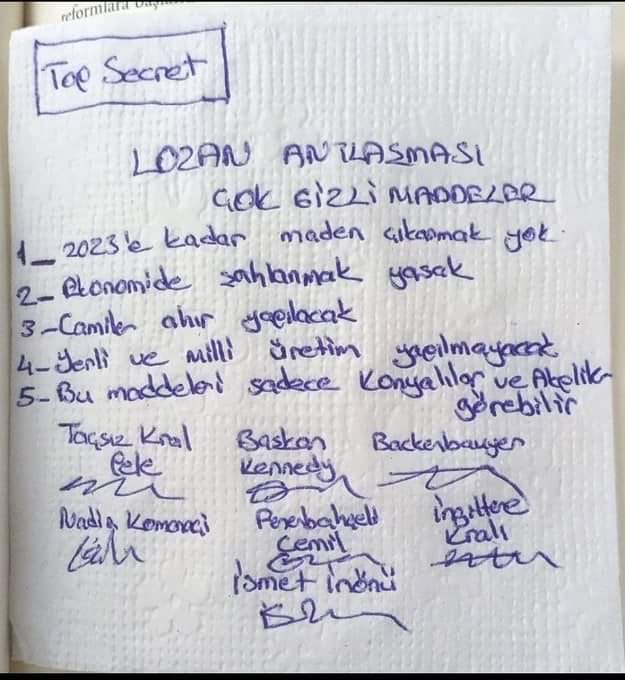 reformlara başla
Top Secret
LOZAN ANTLAŞMASI
ÇOK GİZLİ MADDELER
1_ 2023'e kadar maden çıkarmak yok.
2- Ekonomide şahlanmak yasak
3-Camiler ahır yapılacak
4-Yerli ve milli üretim yapılmayacak
5- Bu maddeleri sadece Konyalılar ve Akpli-
görebilir
Taçsız Kral Başkan Backenbauyer
Pele Kennedy
Nadia Komanaçi Fenerbahçeli İngiltere
Cemil Kralı
İsmet İnönü